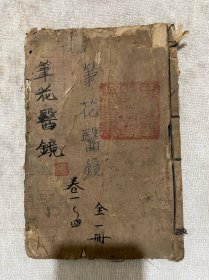 筆花醫鏡
全一冊
卷一～四
筆花醫鏡